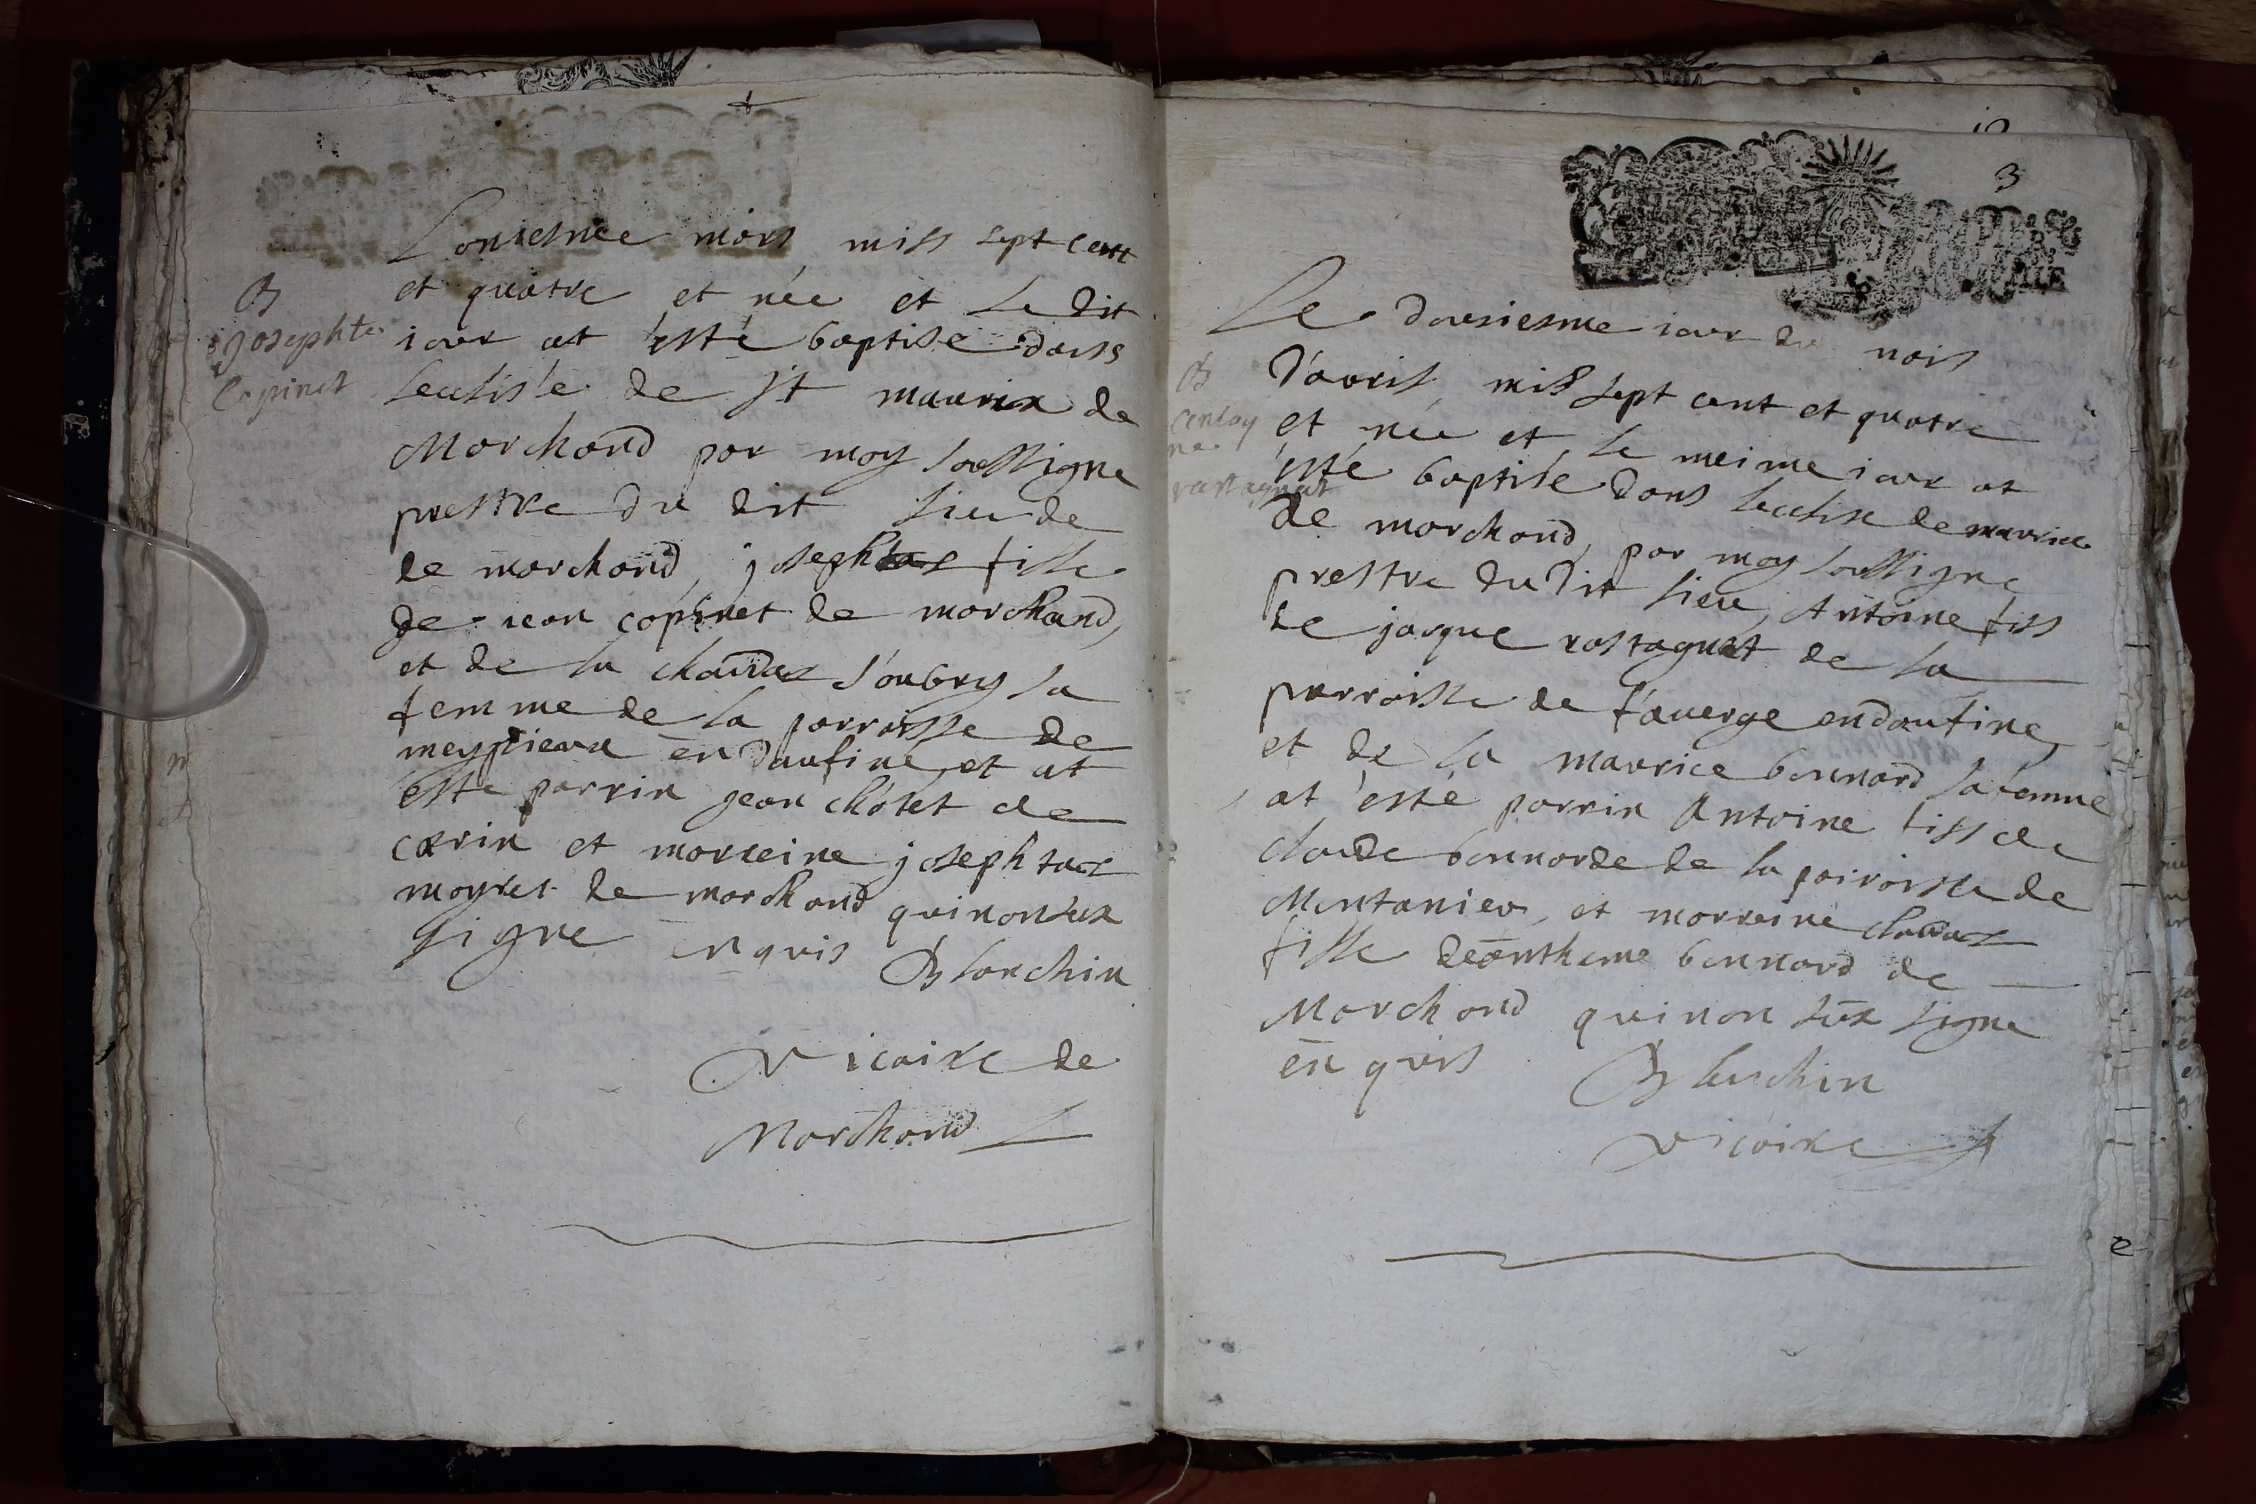 B
josephte
Copinet
L'onziesme mars mill sept cent
et quatre et née et le dit
iour at esté baptise dans
leclise de st maurice de
Marchand par moy soussigne
prestre du dit lieu de
de marchand, josephtaz fille
de iean copinet de marchand,
et de la claudaz
femme de la parroisse de
meyptieux en daufine, et at
este parrin jean chotet de
cerin et marreine josephtaz
moynet de marchand qui non sux
signe enquis Blanchin
Vicaire de
Marchand
3
B
rastagnat
Le dousiesme iour du mois
d'avril mill sept cent et quatre
et née et le meime iour at
esté baptise dans leclise de maurice
de marchand, par moy soussigne
prestre du dit lieu, Antoine fils
de jaque rastagnat de la
parroisse de faverge en daufine,
et de la maurice bonnard sa femme
at esté parrin Antoine fils de
claude bonnarde de la pairoisse de
Montanieu, et marreine claudaz
fille de antheme bonnard de
Marchand qui non sux signe
enquis Blanchin
vicaire